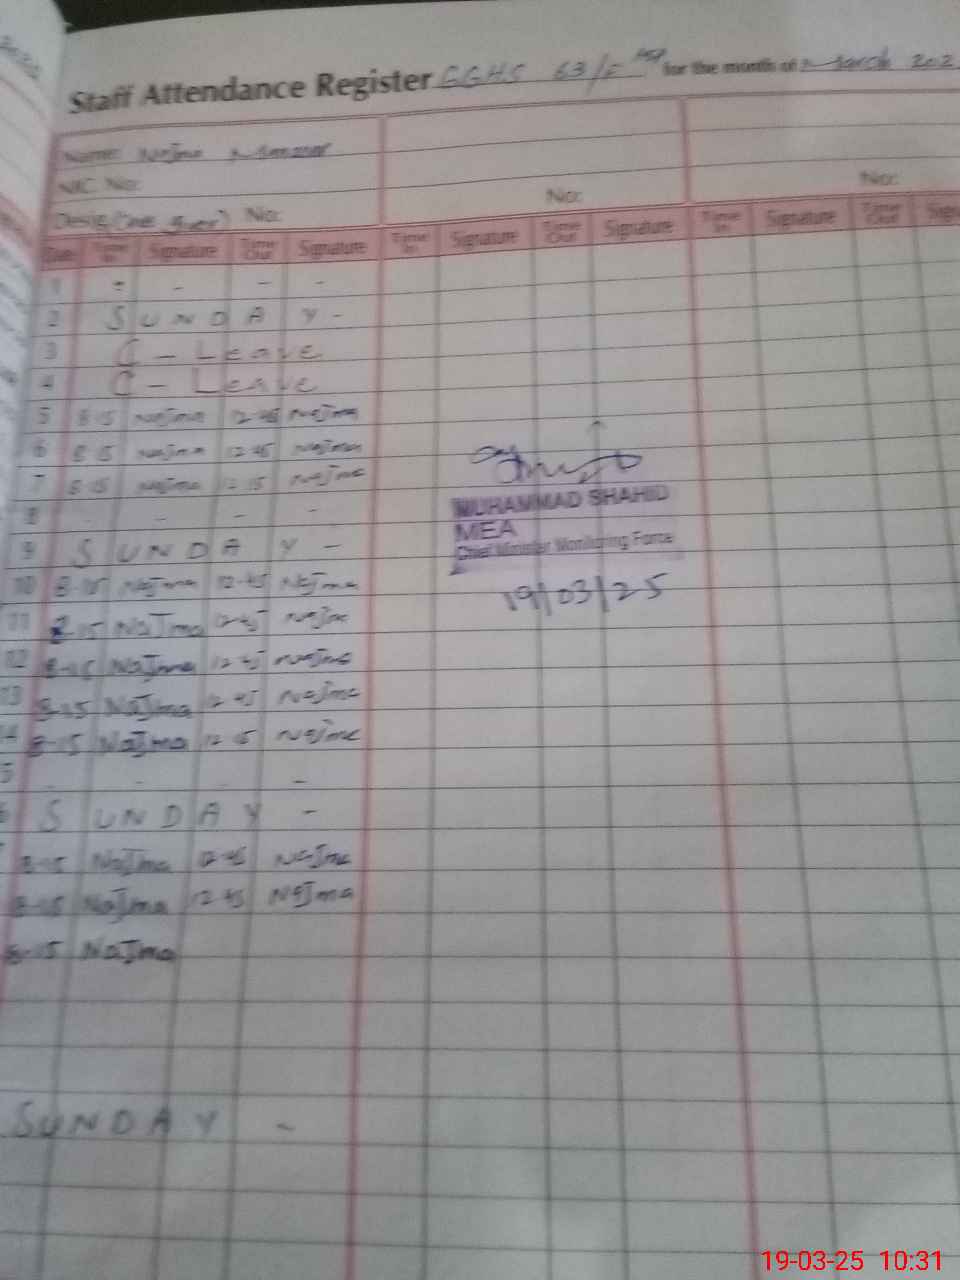 Staff Attendance Register GGHS 63/ for the month of March 202
Name: Najma
NIC. No:
Desig (Care giver) No: No: No:
Date Time In Signature Time Out Signature Time In Signature Time Out Signature Time In Signature Time Out Sign
1 - - - -
2 S U N D A Y -
3 C - Leave
4 C - Leave
5 8-15 Najma 12-45 Najma
6 8-15 Najma 12-45 Najma
7 8-15 Najma 12-15 Najma
8 - - - -
9 S U N D A Y -
10 8-15 Najma 12-45 Najma
11 8-15 Najma 12-45 Najma
12 8-15 Najma 12-45 Najma
13 8-15 Najma 12-45 Najma
4 8-15 Najma 12-45 Najma
5 - - - -
6 S U N D A Y -
8-15 Najma 12-45 Najma
8-15 Najma 12-45 Najma
8-15 Najma
SUNDAY -
MUHAMMAD SHAHID
MEA
Chief Minister Monitoring Force
19/03/25
19-03-25 10:31